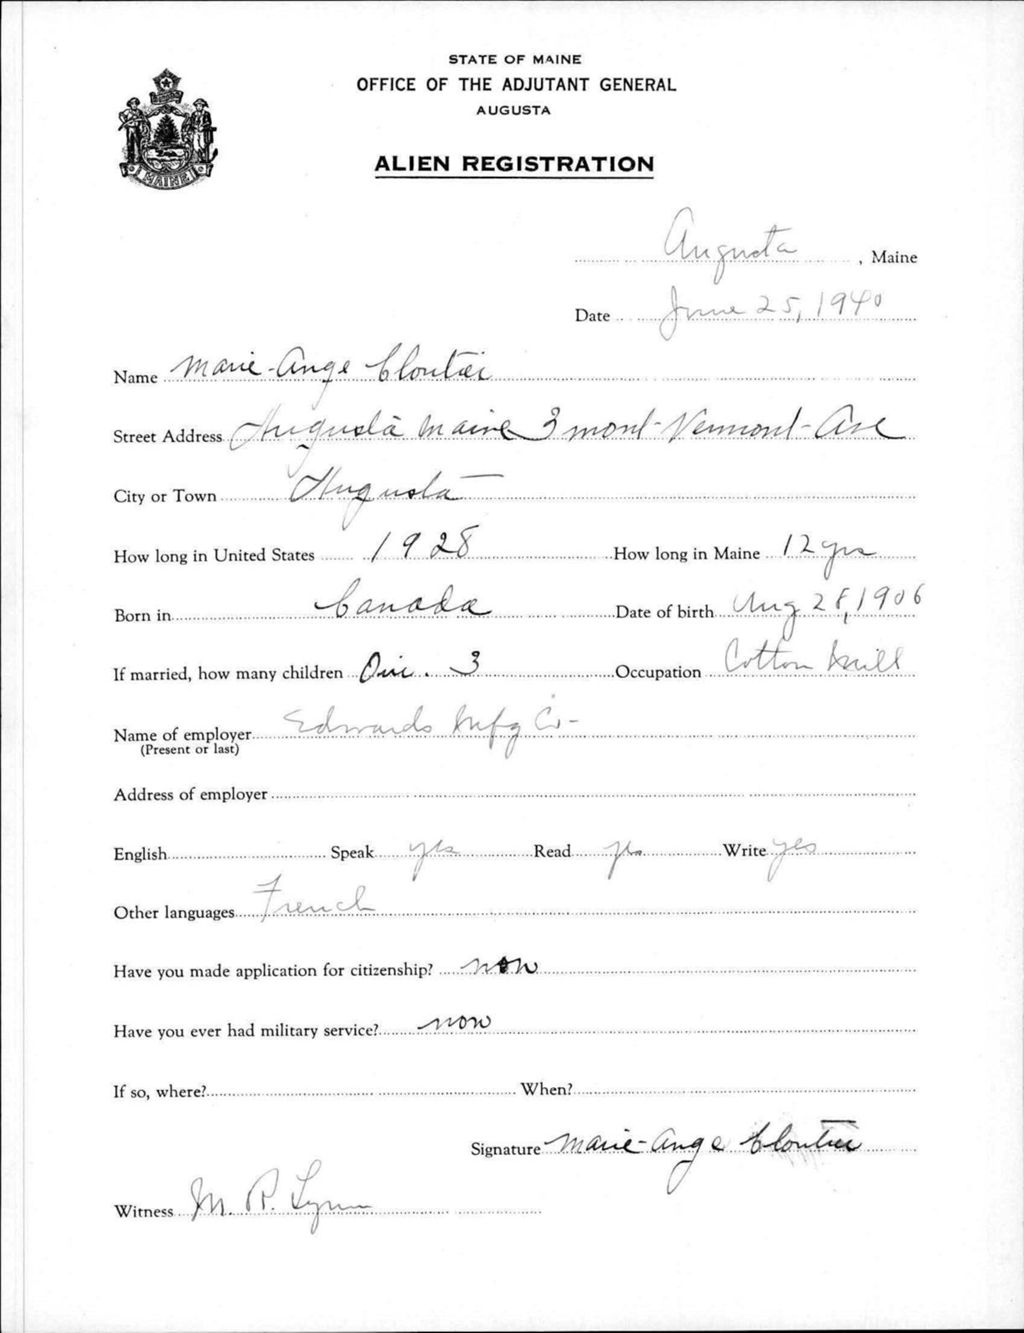 STATE OF MAINE
OFFICE OF THE ADJUTANT GENERAL
AUGUSTA
ALIEN REGISTRATION
MAINE
Augusta, Maine
Date June 25, 1940
Name Marie-Ange Cloutier
Street Address Augusta Maine 3 mont-Vermont-Ave
City or Town Augusta
How long in United States 1928 How long in Maine 12 yrs
Born in Canada Date of birth Aug 28, 1906
If married, how many children Oui. 3 Occupation Cotton Mill
Name of employer Edwards Mfg Co-
(Present or last)
Address of employer
English Speak yes Read yes Write yes
Other languages French
Have you made application for citizenship? non
Have you ever had military service? non
If so, where? When?
Signature Marie-Ange Cloutier
Witness M. R. Lynn